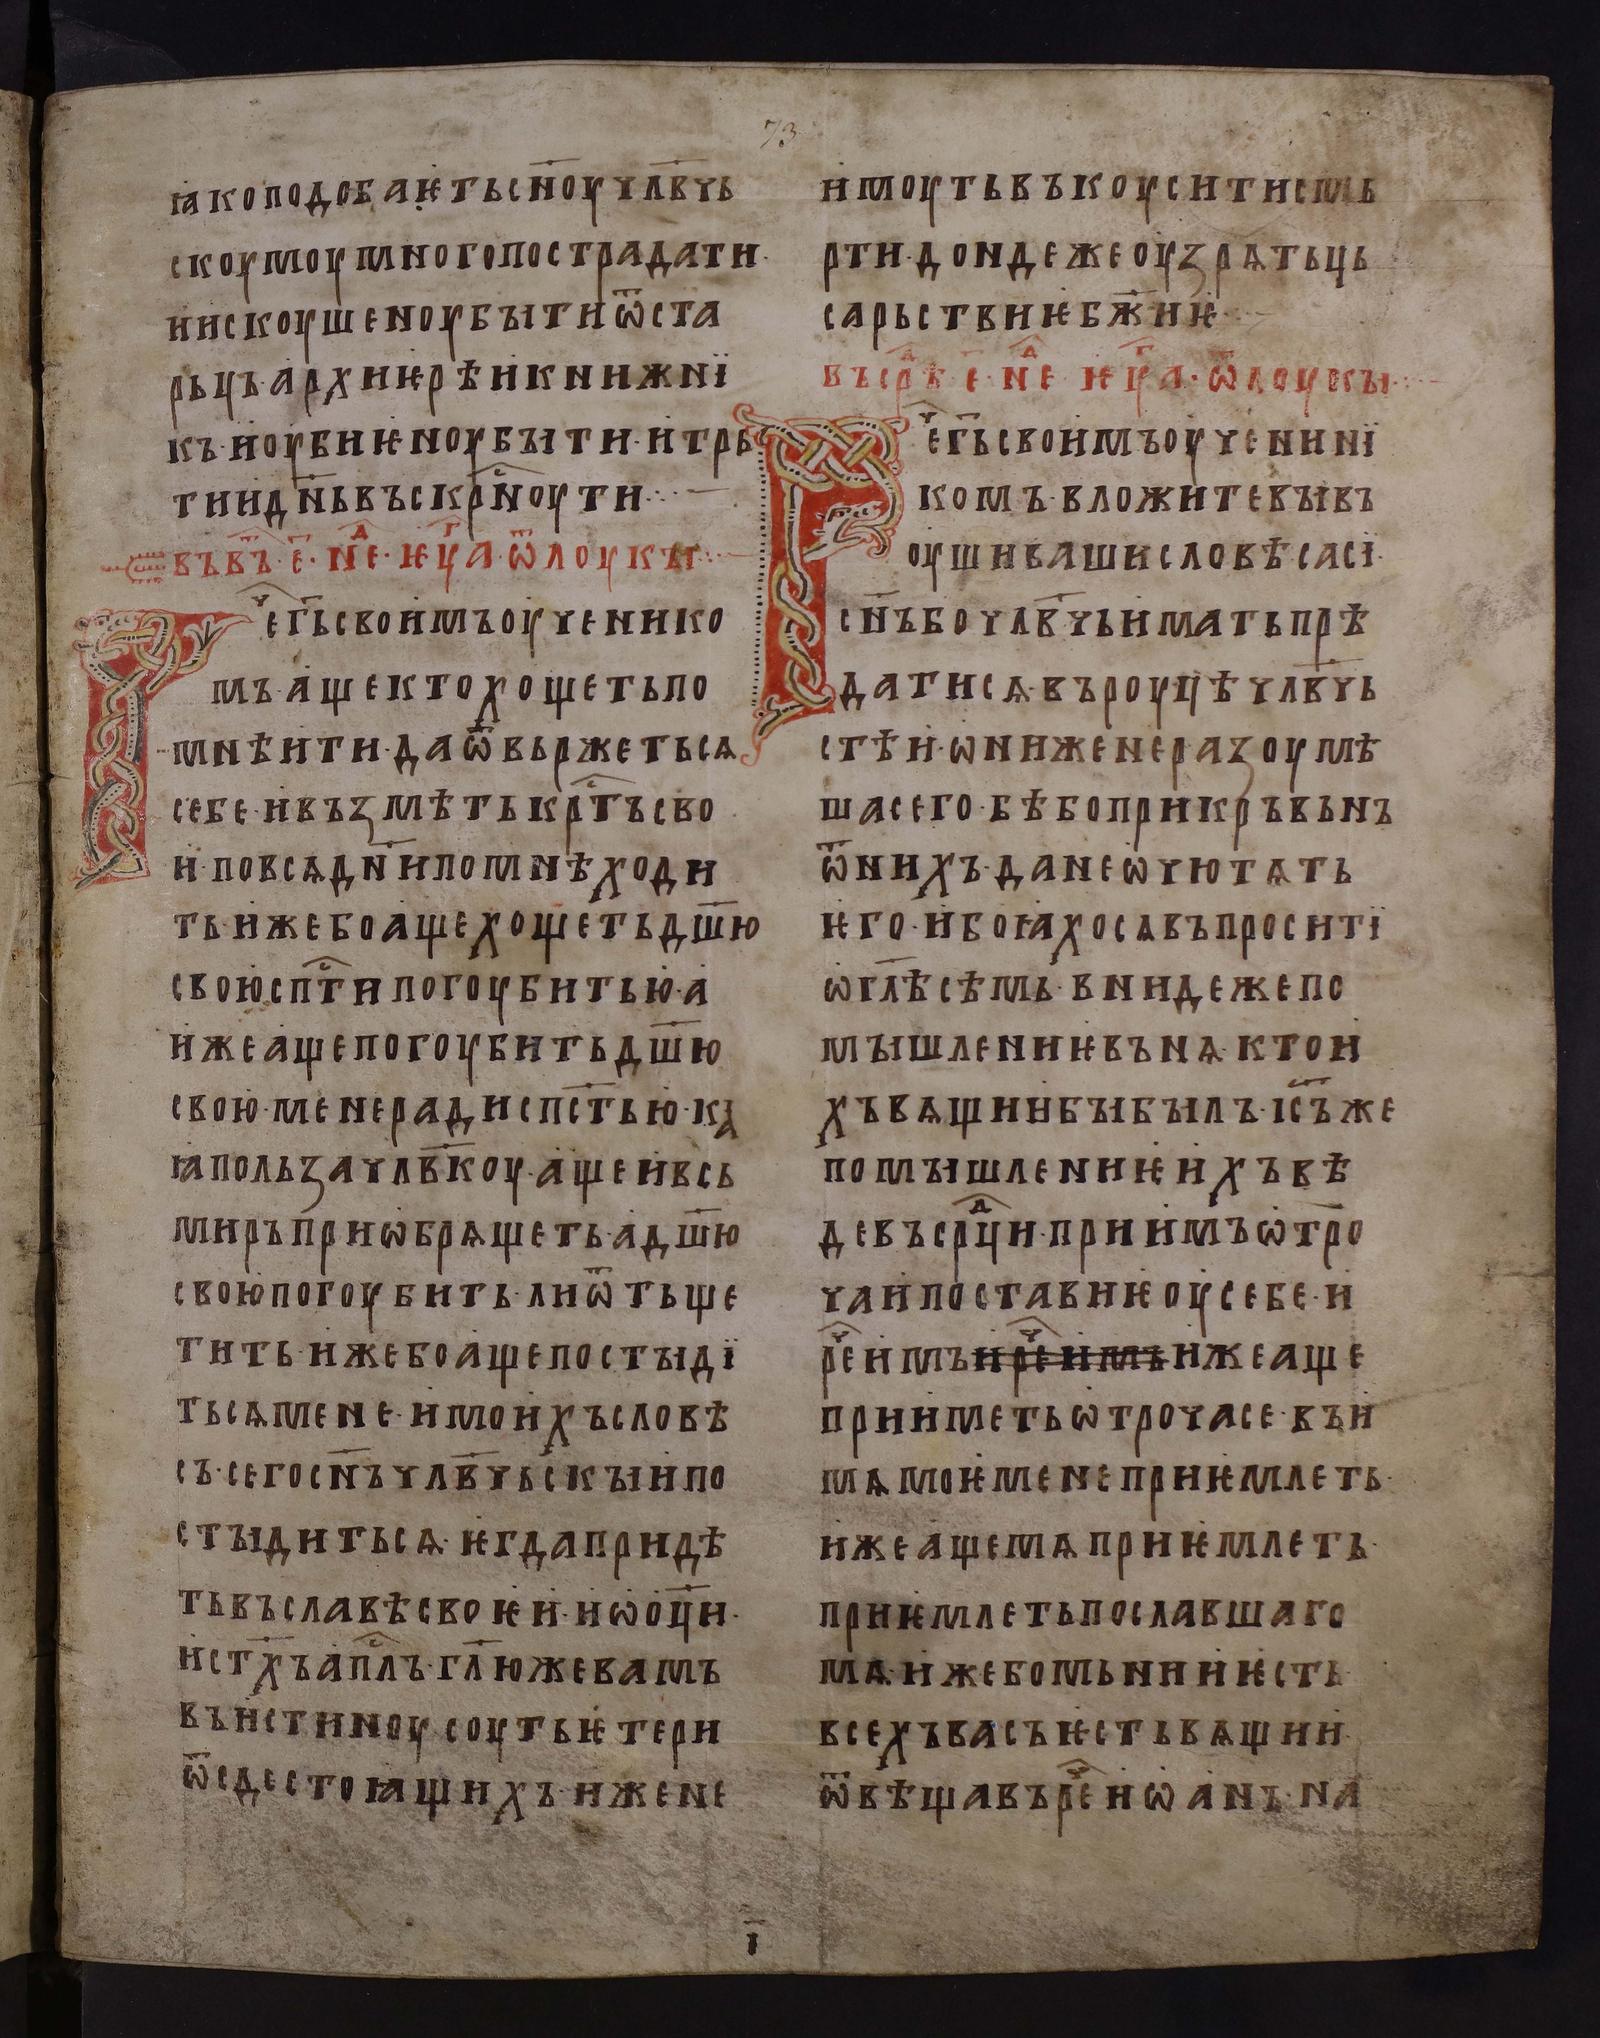 73
ꙗкоподобаѥтьсн҃оучл҃вчь
скоумоумногопострадати·
иискоушеноубытиѿста
рьць·архиѥрѣикнижнї
къ·ноубиѥноубыти·итрь
тиид҃ньвъскрⷭ҇ноути·
въвⷮъ·е҃·нⷣе·ѥⷢ҇уа·ѿлоукы·
Рⷱ҇егь҃своимъоученико
мъ·ащектохощетьпо
мнѣити·даѿвьржетьсѧ
себе·ивъзмѣтькрⷭ҇тъсво
и·повсѧдн҃ипомнѣходи
ть·ижебоащехощетьдш҃ю
своюспⷭ҇типогоубитью·а
ижеащепогоубитьдш҃ю
свою·менерадиспс҃тью·каꙗ
ꙗпользачлв҃коу·ащеивсь
миръприѡбрѧщеть·адш҃ю
своюпогоубить·лиѿтъще
тить·ижебоащепостыдї
тьсѧмене·имоихъсловѣ
съ·сегосн҃ъчлв҃чьскыипо
стыдитьсѧ·ѥгдапридѣ
тьвъславѣсвоѥи·иѡоц҃и·
ист҃хъапⷭ҇лъ·гл҃южевамъ
въистиноу·соутьѥтери
ѿсдестоꙗщихъ·ижене
имоутьвъкоуситисмь
рти·дондежеоузрѧтьць
сарьствиѥбж҃иѥ·
въсрⷣѣ·е҃·нⷣе·ѥⷢ҇уа·ѿлоукы·
Рⷱ҇егь҃своимъоученинї
комъ·вложитевывъ
оушивашисловѣсасі·
сн҃ъбочлв҃чьиматьпрѣ
датисѧ·въроуцѣчлв҃чь
стѣи·ѡнижеперазоумѣ
шасего·бѣбоприкръвьнъ
ѿнихъ·данеѡчютѧть
ѥго·ибоꙗхосѧвъпроситї
ѡгл҃ѣсѣмь·внидежепо
мышлениѥвънѧ·ктои
хъвѧщиибыбылъ·іс҃ъже
помышлениѥихъвѣ
девъсрⷣци·приимъѡтро
чаипоставиѥоусебе·и
рⷱ҇еимъирⷱ҇еимъижеаще
прииметьѡтрочасе·въи
мѧмоѥменеприѥмлеть·
ижеащемѧприѥмлеть·
приѥмлетьпославшаго
мѧ·ижебомьнииѥсть
всехъвасъѥстьвѧщии·
ѿвѣщавърⷱ҇еиѡанъ·на
і҃